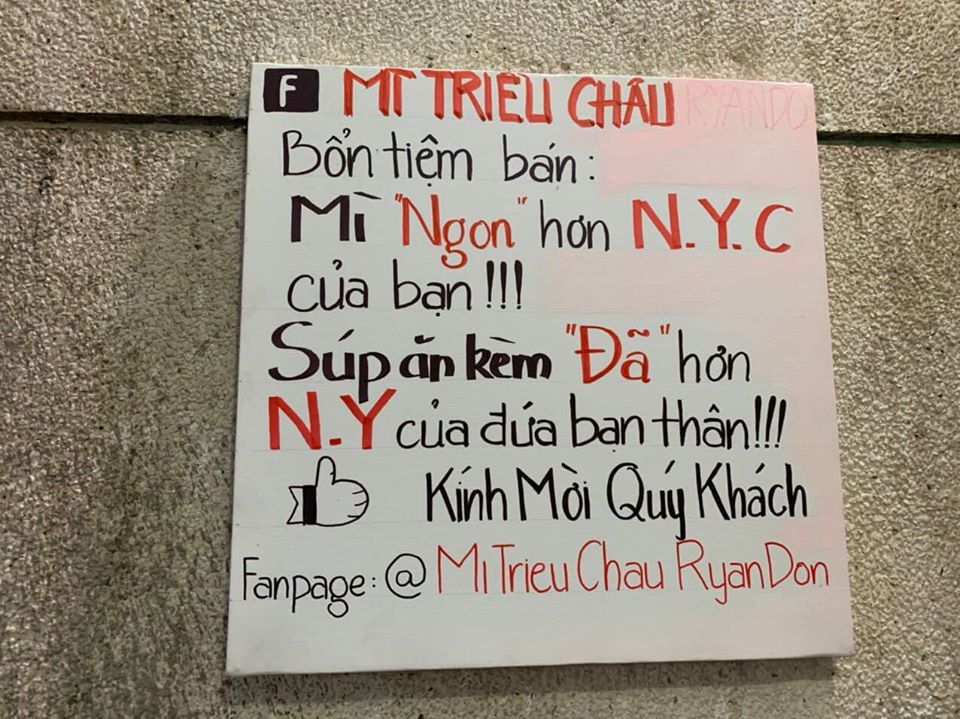 F MÌ TRIỀU CHÂU RYANDO
Bổn tiệm bán:
Mì "Ngon" hơn N.Y.C
của bạn!!!
Súp ăn kèm "Đã" hơn
N.Y của đứa bạn thân!!!
Kính Mời Quý Khách
Fanpage: @MiTrieuChau RyanDon